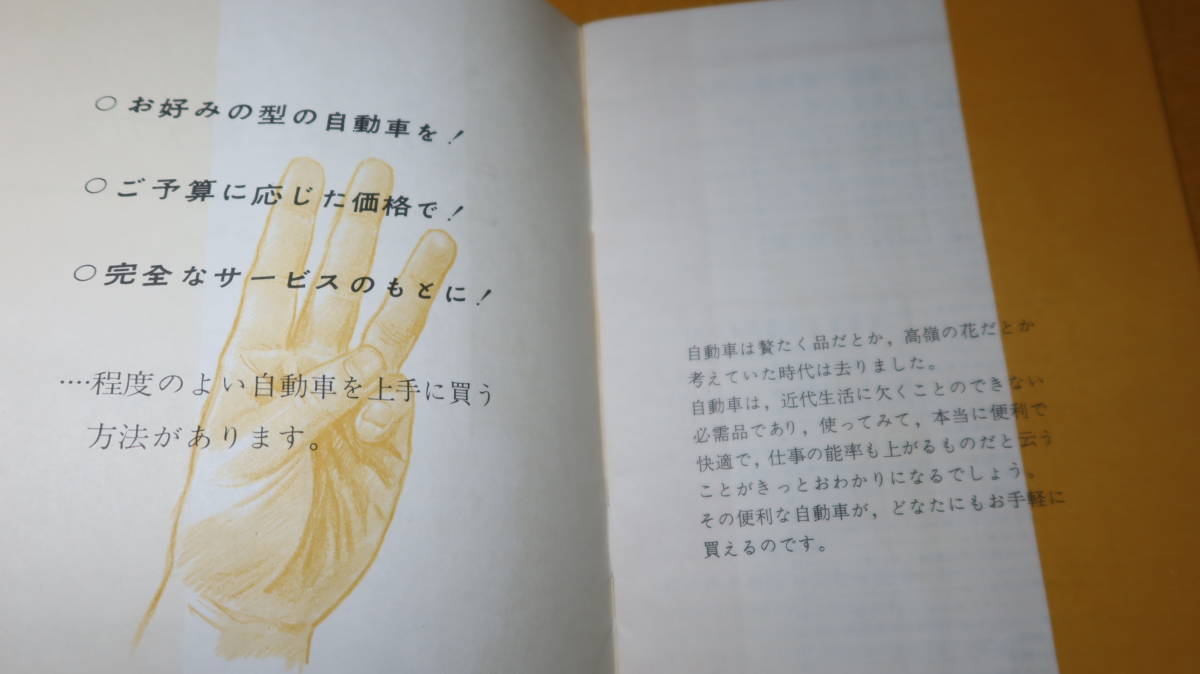 ○お好みの型の自動車を!
○ご予算に応じた価格で!
○完全なサービスのもとに!
‥‥程度のよい自動車を上手に買う
方法があります。
自動車は贅たく品だとか,高嶺の花だとか
考えていた時代は去りました。
自動車は,近代生活に欠くことのできない
必需品であり,使ってみて,本当に便利で
快適で,仕事の能率も上がるものだと云う
ことがきっとおわかりになるでしょう。
その便利な自動車が,どなたにもお手軽に
買えるのです。